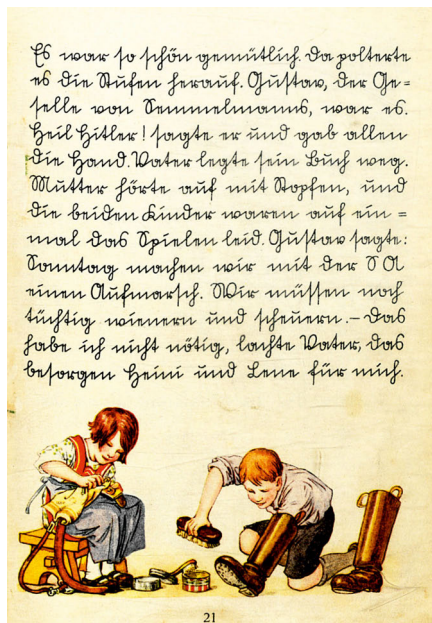 Es war so schön gemütlich. Da polterte
es die Stufen herauf. Gustav, der Ge=
selle von Semmelmanns, war es.
Heil Hitler! sagte er und gab allen
die Hand. Vater legte sein Buch weg.
Mutter hörte auf mit Stopfen, und
die beiden Kinder waren auf ein =
mal das Spielen leid. Gustav sagte:
Sonntag machen wir mit der S A
einen Aufmarsch. Wir müssen noch
tüchtig wienern und scheuern. – Das
habe ich nicht nötig, lachte Vater, das
besorgen Heini und Lene für mich.
21